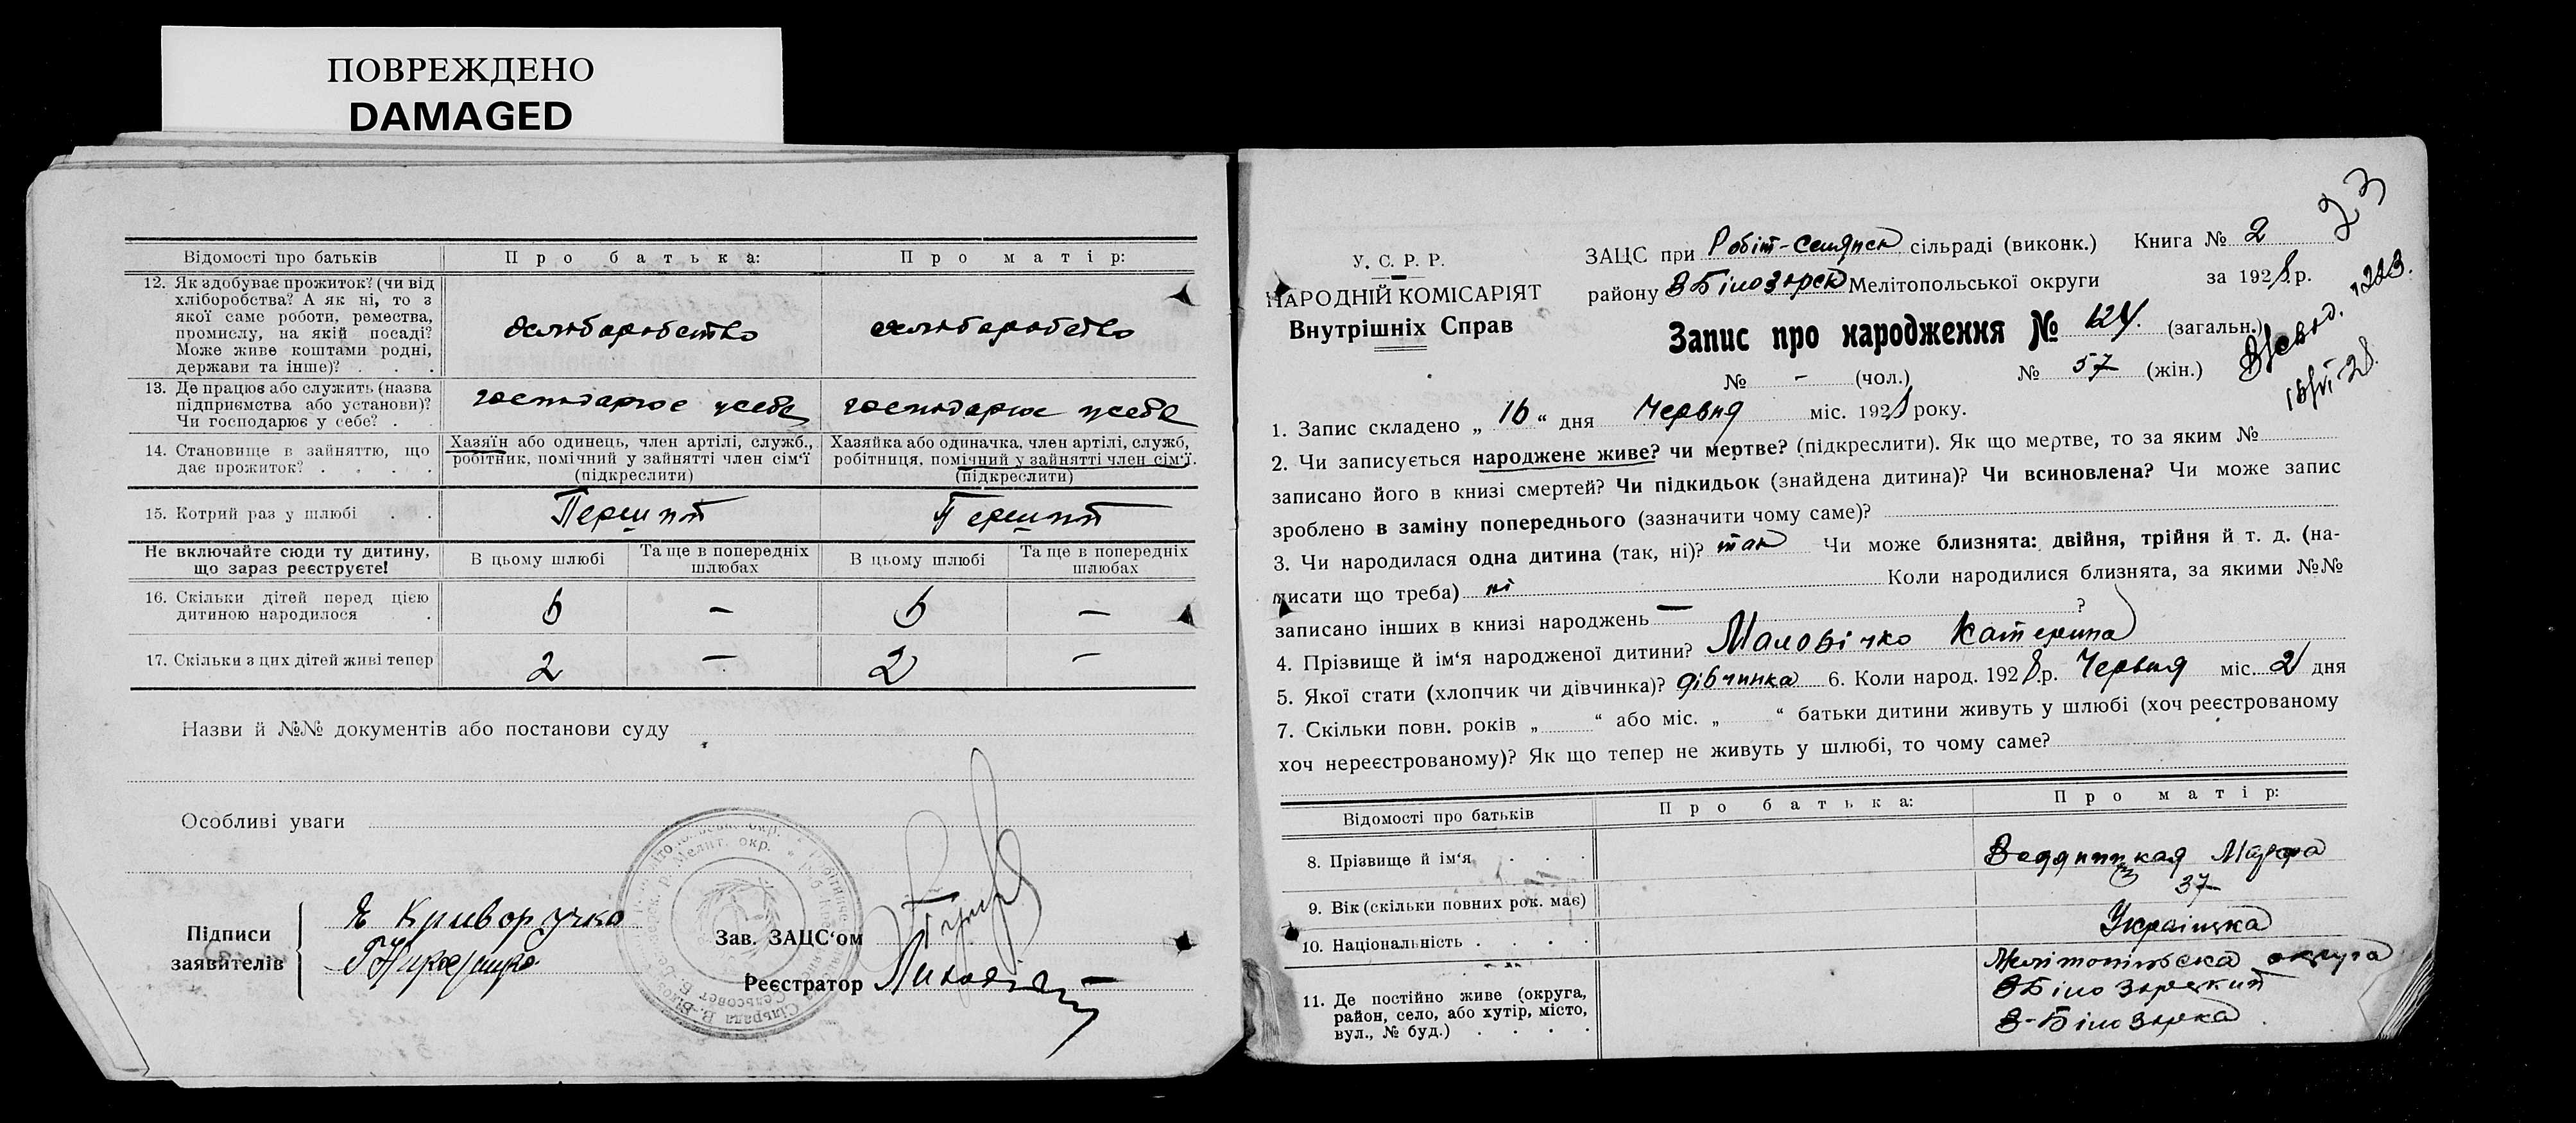 ПОВРЕЖДЕНО
DAMAGED
Відомості про батьків
Про батька:
Про матір:
12. Як здобуває прожиток? (чи від
хліборобства? А як ні, то з
якої саме роботи, ремества,
промислу, на якій посаді?
Може живе коштами родні,
держави та інше)? . . .
хліборобство
хліборобство
13. Де працює або служить (назва
підприємства або установи)?
Чи господарює у себе? . .
господарює усебе
господарює усебе
14. Становище в зайняттю, що
дає прожиток? . . . .
Хазяїн або одинець, член артілі, служб.,
робітник, помічний у зайнятті член сім'ї
(підкреслити)
Хазяйка або одиначка, член артілі, служб,
робітниця, помічний у зайнятті член сім'ї.
(підкреслити)
15. Котрий раз у шлюбі . .
Перший
Перший
Не включайте сюди ту дитину,
що зараз реєструєте!
В цьому шлюбі
Та ще в попередніх
шлюбах
В цьому шлюбі
Та ще в попередніх
шлюбах
16. Скільки дітей перед цією
дитиною народилося .
6 — 6 —
17. Скільки з цих дітей живі тепер
2 — 2 —
Назви й №№ документів або постанови суду
Особливі уваги
Підписи
заявителів
Я Криворучко
Зав. ЗАЦС'ом
Реєстратор
23
У. С. Р. Р.
НАРОДНІЙ КОМІСАРІЯТ
Внутрішніх Справ
ЗАЦС при Робіт-Селянск сільраді (виконк.) Книга № 2
району ВБілозерск Мелітопольської округи за 1928 р.
Запис про народження № 124. (загальн.)
№ - (чол.) № 57 (жін.)
1. Запис складено „ 16 “ дня Червня міс. 1928 року.
2. Чи записується народжене живе? чи мертве? (підкреслити). Як що мертве, то за яким №
записано його в книзі смертей? Чи підкидьок (знайдена дитина)? Чи всиновлена? Чи може запис
зроблено в заміну попереднього (зазначити чому саме)?
3. Чи народилася одна дитина (так, ні)? так Чи може близнята: двійня, трійня й т. д. (на-
писати що треба) ні Коли народилися близнята, за якими №№
записано інших в книзі народжень — ?
4. Прізвище й ім'я народженої дитини? Маловічко Катерина
5. Якої стати (хлопчик чи дівчинка)? дівчинка 6. Коли народ. 1928 р. Червня міс. 2 дня
7. Скільки повн. років „ “ або міс. „ “ батьки дитини живуть у шлюбі (хоч реєстрованому
хоч нереєстрованому)? Як що тепер не живуть у шлюбі, то чому саме?
Відомості про батьків
Про батька:
Про матір:
8. Прізвище й ім'я . . .
9. Вік (скільки повних рок. має)
37
10. Національність . . . .
Українка
11. Де постійно живе (округа,
район, село, або хутір, місто,
вул., № буд.) . . . .
Мелітопільська округа
ВБілозерский
В-Білозерка